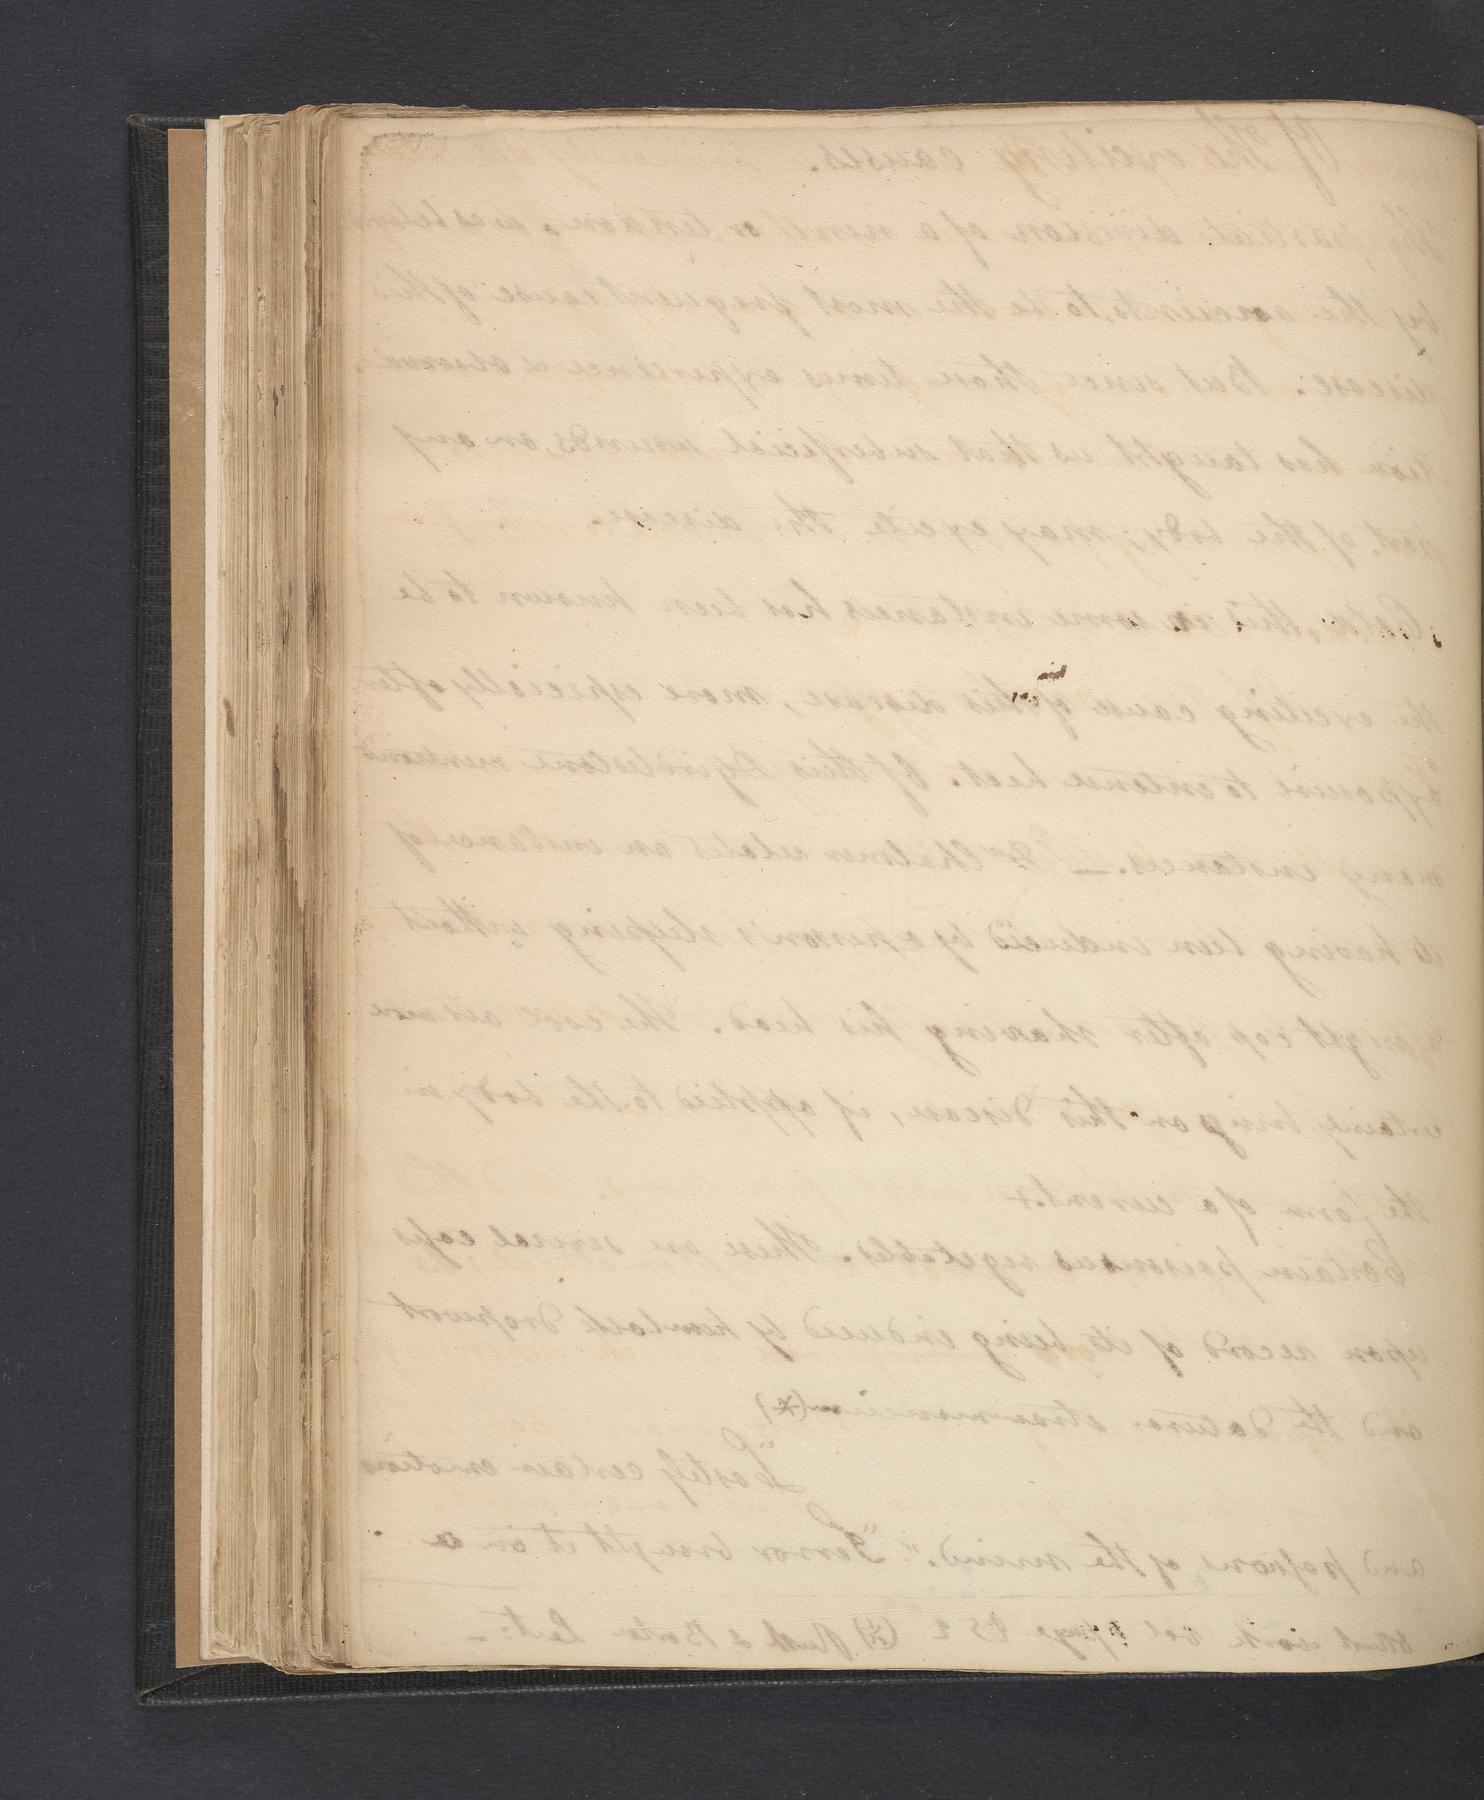 Of the exciting causes.
The partial division of a nerve or tendon, was believ
by the ancients, to be the most frequent cause of this
disease. But since their times experience & observa
tion has taught us that superficial wounds, on any
part of the body, may excite this disease.
Cold, this in some instances has been known to be
the exciting cause of this disease, more especially after
exposure to intense heat. Of this Girdlestone mentions
many instances. Dr Chalmers relates an instance of
its having been induced by a person's sleeping without
night cap after shaving his head. The cold air more
certainly brings on this disease, if applied to the body in
the form of a current.+
Certain poisonous vegetables. There are several cases
upon record of its being induced by hemlock dropwort
and the datura stramonium (x)
"Lastly certain emotions
and passions of the mind." "Terror brought it on a
work vol page 252 (x) Rush & Barton Lect: –